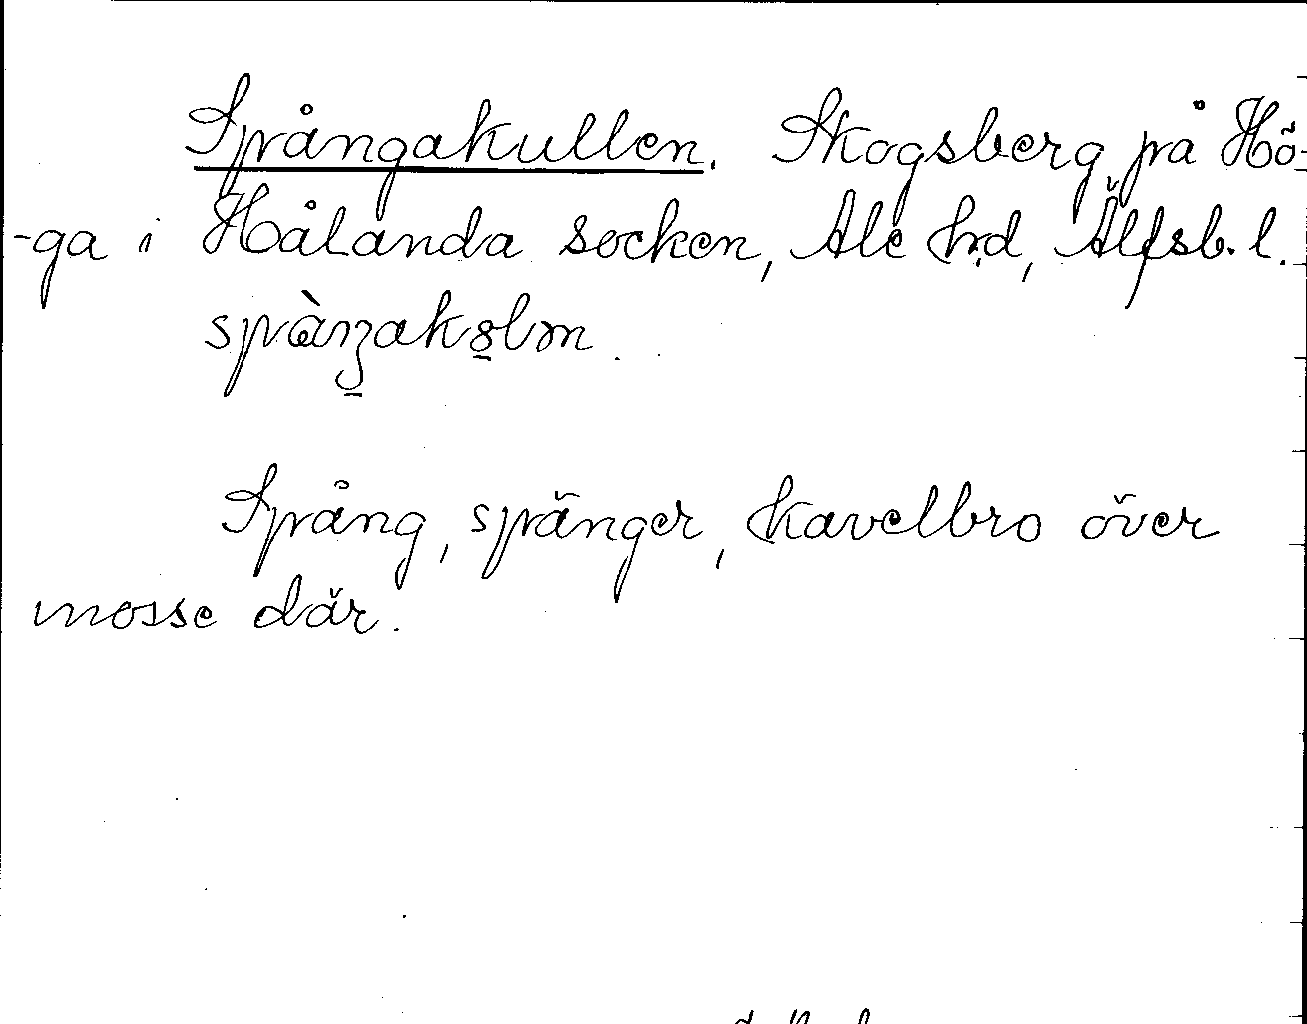 Spångakullen. Skogsberg på Hö-
-ga i Hålanda socken, Ale hrd, Älfsb. l.
Spång, spänger, kavelbro över
mosse där.